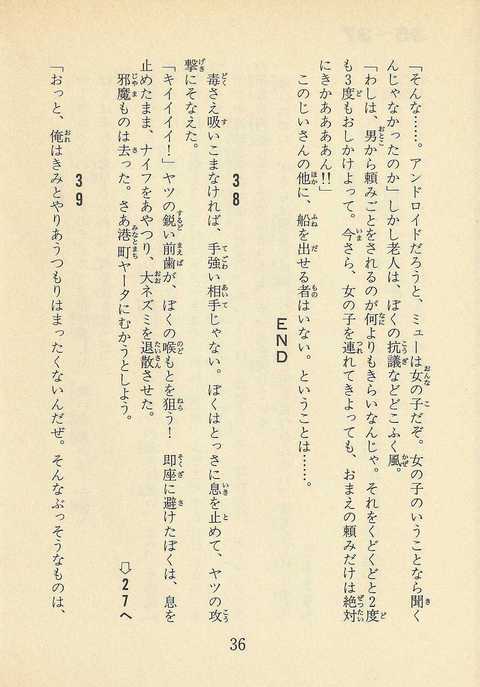 「そんな……。アンドロイドだろうと、ミューは女の子だぞ。女の子のいうことなら聞く
んじゃなかったのか」しかし老人は、ぼくの抗議などどこふく風。
「わしは、男から頼みごとをされるのが何よりもきらいなんじゃ。それをくどくどと2度
も3度もおしかけよって。今さら、女の子を連れてきよっても、おまえの頼みだけは絶対
にきかああああん!!」
このじいさんの他に、船を出せる者はいない。ということは……。
END
38
毒さえ吸いこまなければ、手強い相手じゃない。ぼくはとっさに息を止めて、ヤツの攻
撃にそなえた。
「キイイイイ!」ヤツの鋭い前歯が、ぼくの喉もとを狙う! 即座に避けたぼくは、息を
止めたまま、ナイフをあやつり、大ネズミを退散させた。
邪魔ものは去った。さあ港町ヤータにむかうとしよう。
⇨27へ
39
「おっと、俺はきみとやりあうつもりはまったくないんだぜ。そんなぶっそうなものは、
36